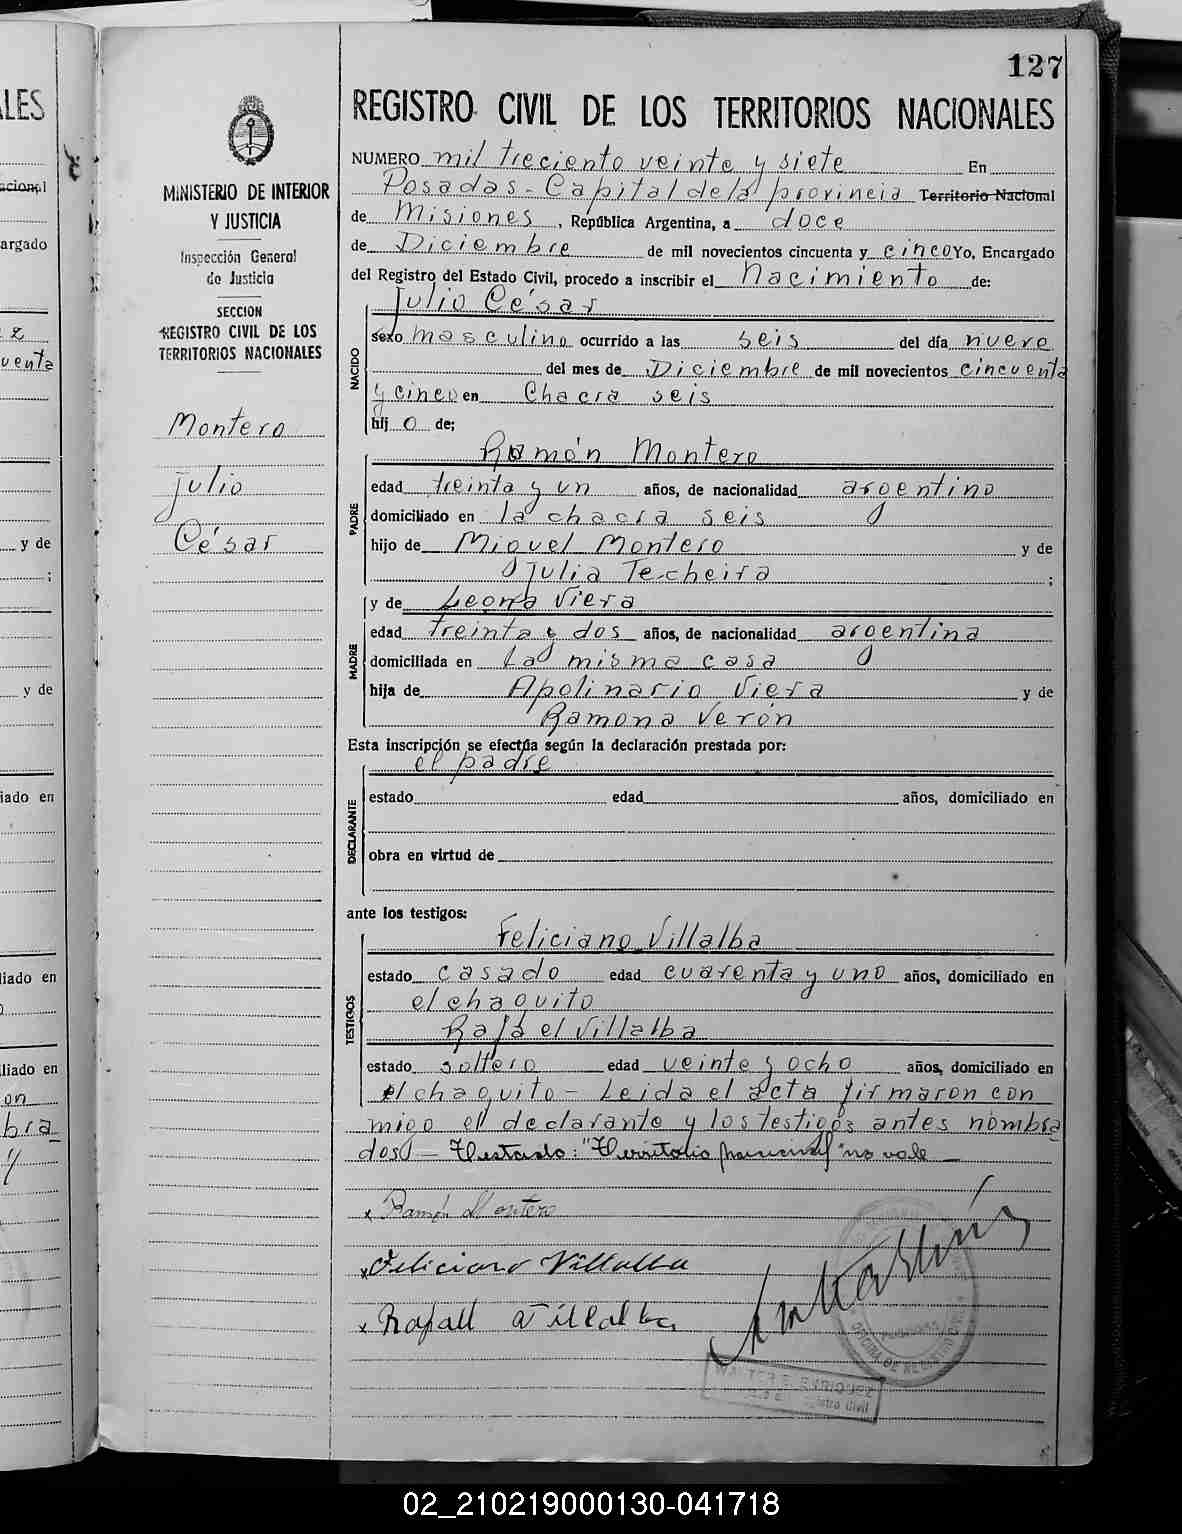 127
REGISTRO CIVIL DE LOS TERRITORIOS NACIONALES
MINISTERIO DE INTERIOR
Y JUSTICIA
Inspección General
de Justicia
SECCION
REGISTRO CIVIL DE LOS
TERRITORIOS NACIONALES
Montero
Julio
César
NUMERO mil treciento veinte y siete En
Posadas - Capital de la provincia Territorio Nacional
de Misiones, República Argentina, a doce
de Diciembre de mil novecientos cincuenta y cinco Yo, Encargado
del Registro del Estado Civil, procedo a inscribir el Nacimiento de:
NACIDO
Julio César
sexo masculino ocurrido a las seis del día nueve
del mes de Diciembre de mil novecientos cincuenta
y cinco en Chacra seis
hij o de;
PADRE
Ramón Montero
edad treinta y un años, de nacionalidad argentino
domiciliado en la chacra seis
hijo de Miguel Montero y de
Julia Techeira ;
MADRE
y de Leona Viera
edad treinta y dos años, de nacionalidad argentina
domiciliada en La misma casa
hija de Apolinario Viera y de
Ramona Verón
Esta inscripción se efectúa según la declaración prestada por:
DECLARANTE
el padre
estado edad años, domiciliado en
obra en virtud de
ante los testigos:
TESTIGOS
Feliciano Villalba
estado casado edad cuarenta y uno años, domiciliado en
el chaquito
Rafael Villalba
estado soltero edad veinte y ocho años, domiciliado en
el chaquito - Leida el acta firmaron con
migo el declarante y los testigos antes nombra
dos - Testado: "Territorio Nacional" no vale
x Ramón Montero
x Feliciano Villalba
x Rafall Villalba
OFICINA DE REGISTRO CIVIL
WALTER E. ENRIQUEZ
Registro Civil
ALES
acional
argado
venta
y de
;
y de
iado en
liado en
liado en
on
bra
02_210219000130-041718